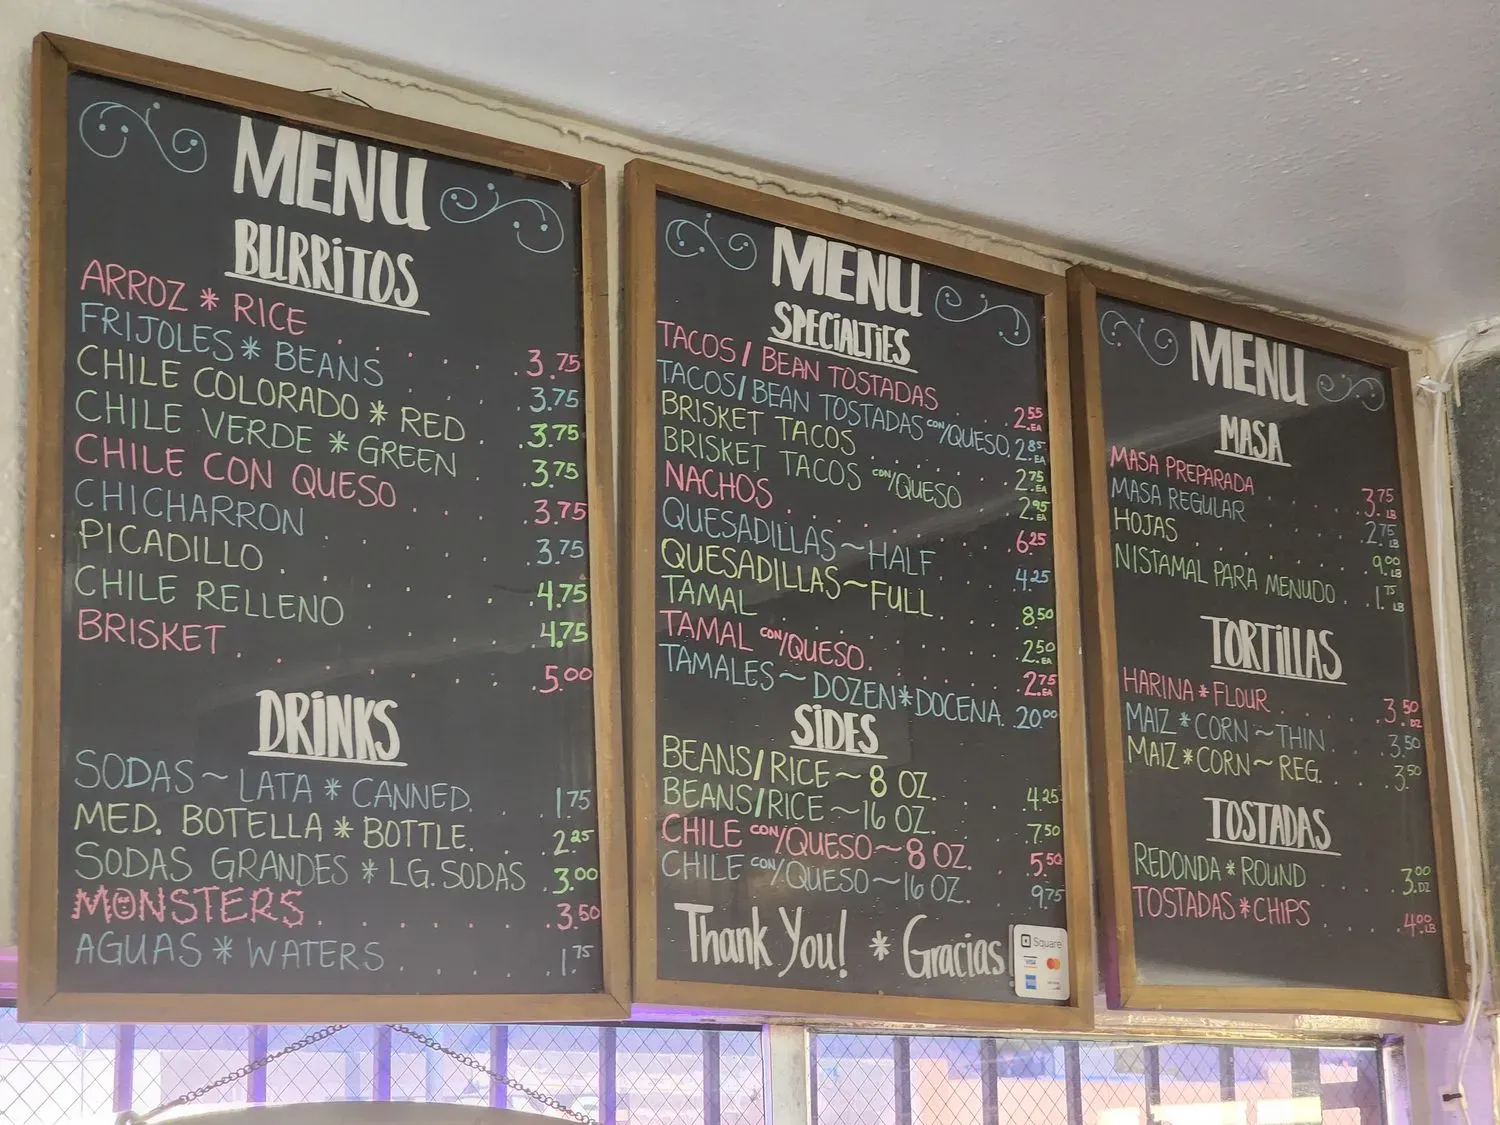 MENU
BURRITOS
ARROZ * RICE . . . . . . 3.75
FRIJOLES * BEANS . . . . 3.75
CHILE COLORADO * RED . . 3.75
CHILE VERDE * GREEN . . 3.75
CHILE CON QUESO . . . 3.75
CHICHARRON . . . . . 3.75
PICADILLO . . . . . . 4.75
CHILE RELLENO . . . . 4.75
BRISKET . . . . . . . 5.00
DRINKS
SODAS ~ LATA * CANNED . . 1.75
MED. BOTELLA * BOTTLE . . 2.25
SODAS GRANDES * LG. SODAS . 3.00
MONSTERS . . . . . . 3.50
AGUAS * WATERS . . . . 1.75
MENU
SPECIALTIES
TACOS / BEAN TOSTADAS . . . 2.55 EA
TACOS/BEAN TOSTADAS CON/QUESO. 2.85 EA
BRISKET TACOS . . . . . 2.75 EA
BRISKET TACOS CON/QUESO . . 2.95 EA
NACHOS . . . . . . . 6.25
QUESADILLAS ~ HALF . . . 4.25
QUESADILLAS ~ FULL . . . 8.50
TAMAL . . . . . . . 2.50 EA
TAMAL CON/QUESO . . . . 2.75 EA
TAMALES ~ DOZEN * DOCENA . 20.00
SIDES
BEANS/RICE ~ 8 OZ. . . . 4.25
BEANS/RICE ~ 16 OZ. . . . 7.50
CHILE CON/QUESO ~ 8 OZ. . . 5.50
CHILE CON/QUESO ~ 16 OZ. . . 9.75
Thank You! * Gracias
Square
VISA
MENU
MASA
MASA PREPARADA . . . . 3.75 LB
MASA REGULAR . . . . . 2.75 LB
HOJAS . . . . . . . 9.00 LB
NISTAMAL PARA MENUDO . . 1.75 LB
TORTILLAS
HARINA * FLOUR . . . . 3.50 DZ
MAIZ * CORN ~ THIN . . . 3.50
MAIZ * CORN ~ REG. . . . 3.50
TOSTADAS
REDONDA * ROUND . . . . 3.00 DZ
TOSTADAS * CHIPS . . . . 4.00 LB